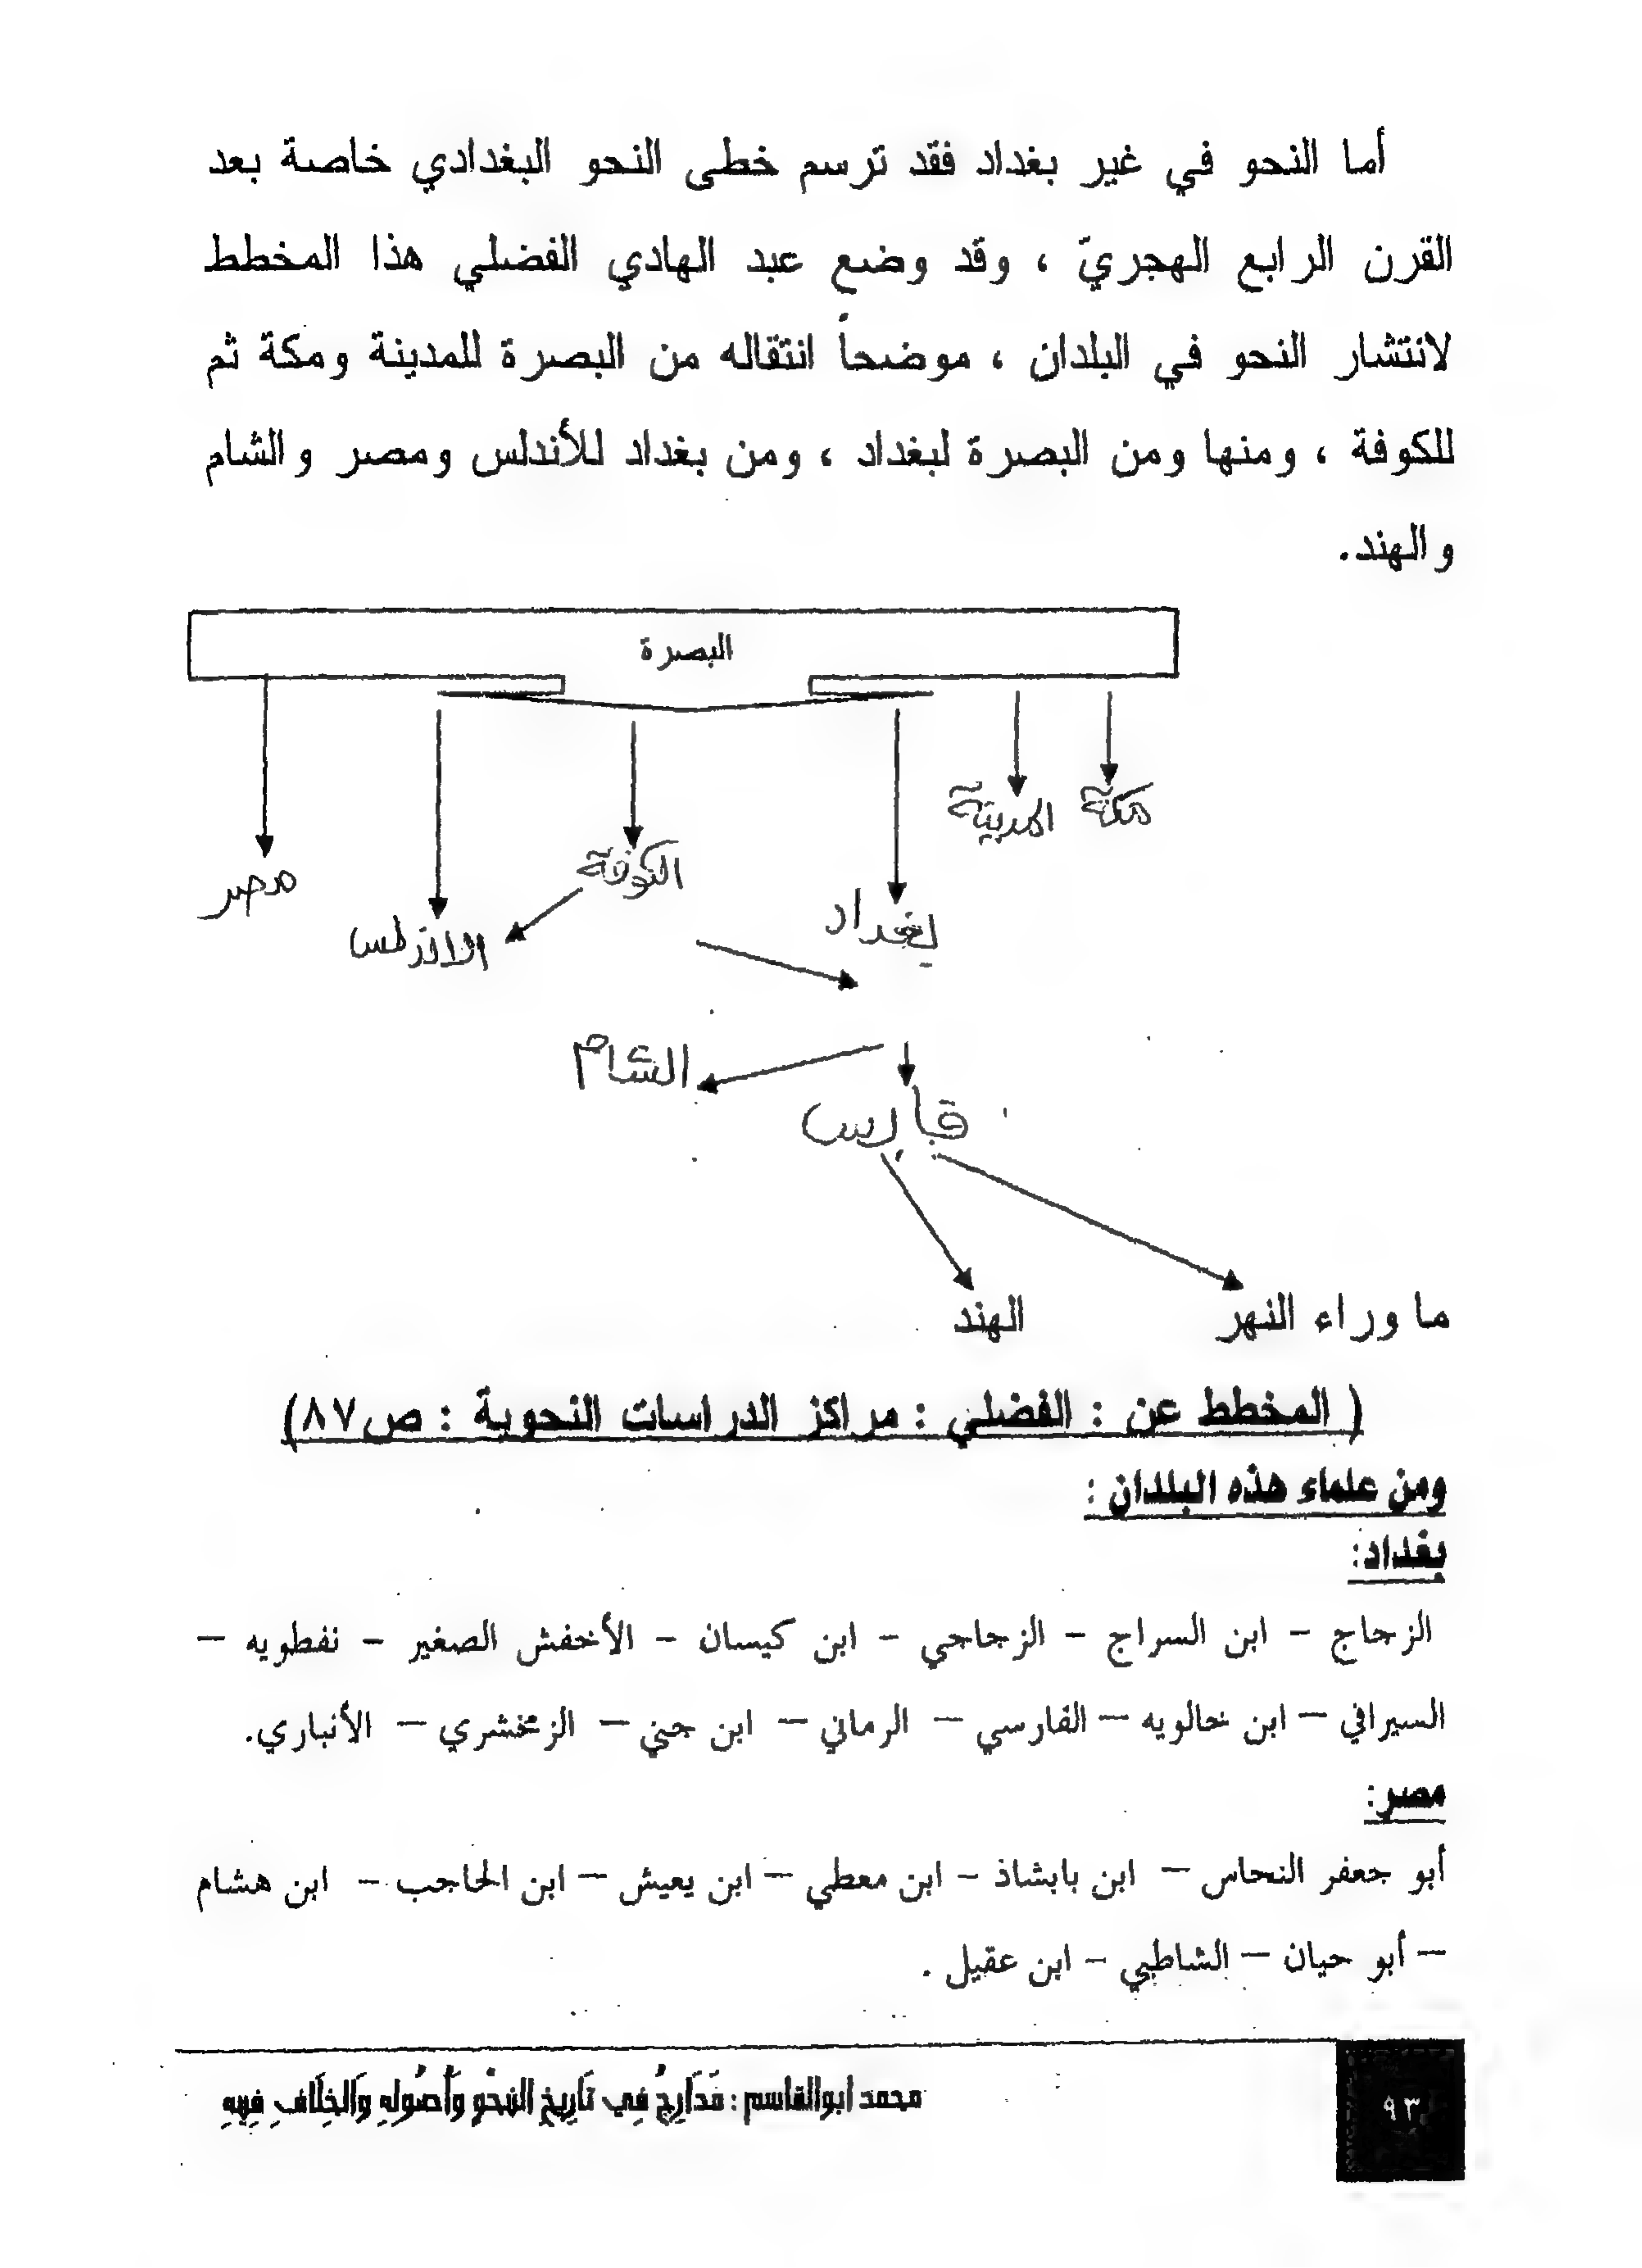 أما النحو في غير بغداد فقد ترسم خطى النحو البغدادي خاصة بعد
القرن الرابع الهجريّ ، وقد وضع عبد الهادي الفضلي هذا المخطط
لانتشار النحو في البلدان ، موضحاً انتقاله من البصرة للمدينة ومكة ثم
للكوفة ، ومنها ومن البصرة لبغداد ، ومن بغداد للأندلس ومصر والشام
والهند.
البصرة
مكة
المدينة
بغداد
الكوفة
الاندلس
مصر
الشام
فارس
ما وراء النهر
الهند
( المخطط عن : الفضلي : مراكز الدراسات النحوية : ص٨٧)
ومن علماء هذه البلدان :
بغداد:
الزجاج – ابن السراج – الزجاجي – ابن كيسان – الأخفش الصغير – نفطويه –
السيرافي – ابن خالويه – الفارسي – الرماني – ابن جني – الزمخشري – الأنباري.
مصر:
أبو جعفر النحاس – ابن بابشاذ – ابن معطي – ابن يعيش – ابن الحاجب – ابن هشام
– أبو حيان – الشاطبي – ابن عقيل .
محمد ابوالقاسم : مَدَارِجُ فِي تَارِيخِ النَّحْوِ وَأُصُولِهِ وَالخِلَافِ فِيهِ
٩٣